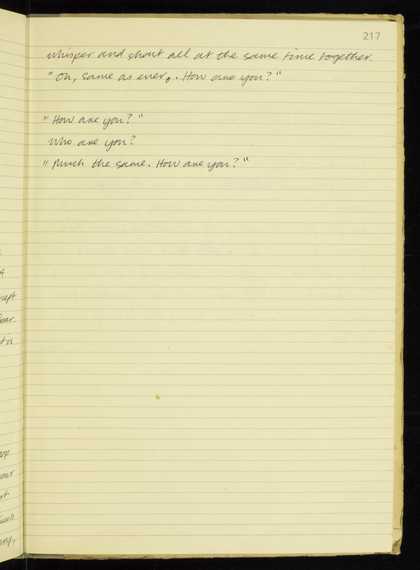 217
whisper and shout all at the same time together.
"Oh, same as ever,. How are you?"
"How are you?"
Who are you?
"Much the same. How are you?"